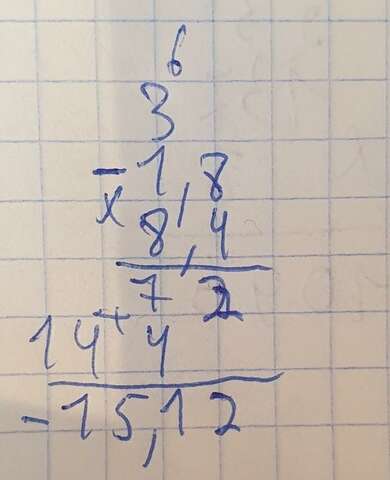 6
3
-1,8
x 8,4
72
+
144
-15,12